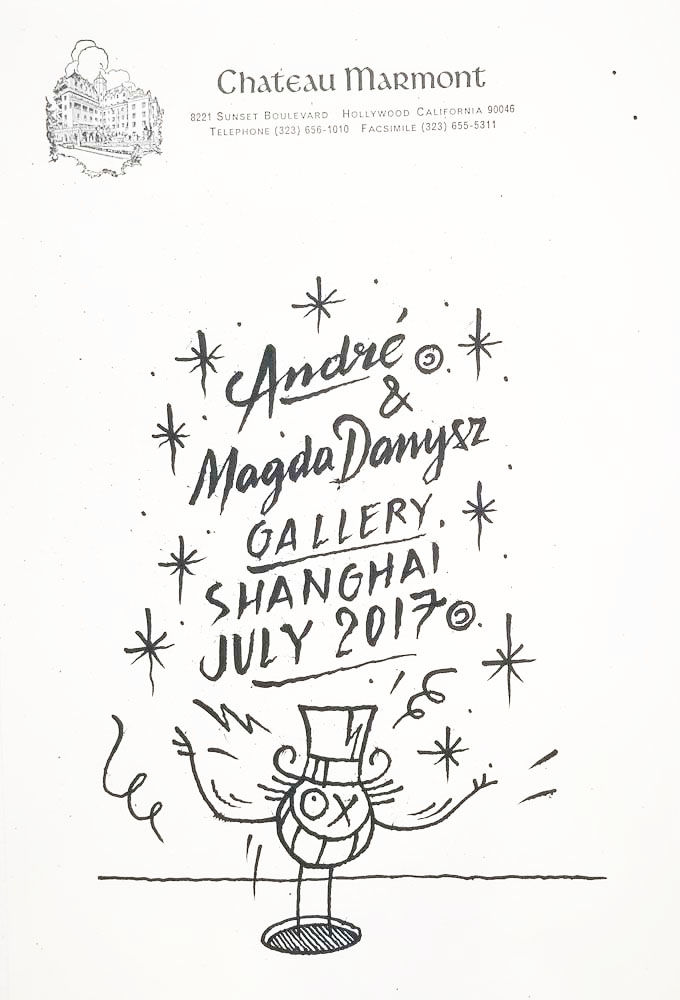 Chateau Marmont
8221 Sunset Boulevard Hollywood California 90046
Telephone (323) 656-1010 Facsimile (323) 655-5311
André
&
Magda Danysz
GALLERY.
SHANGHAI
JULY 2017